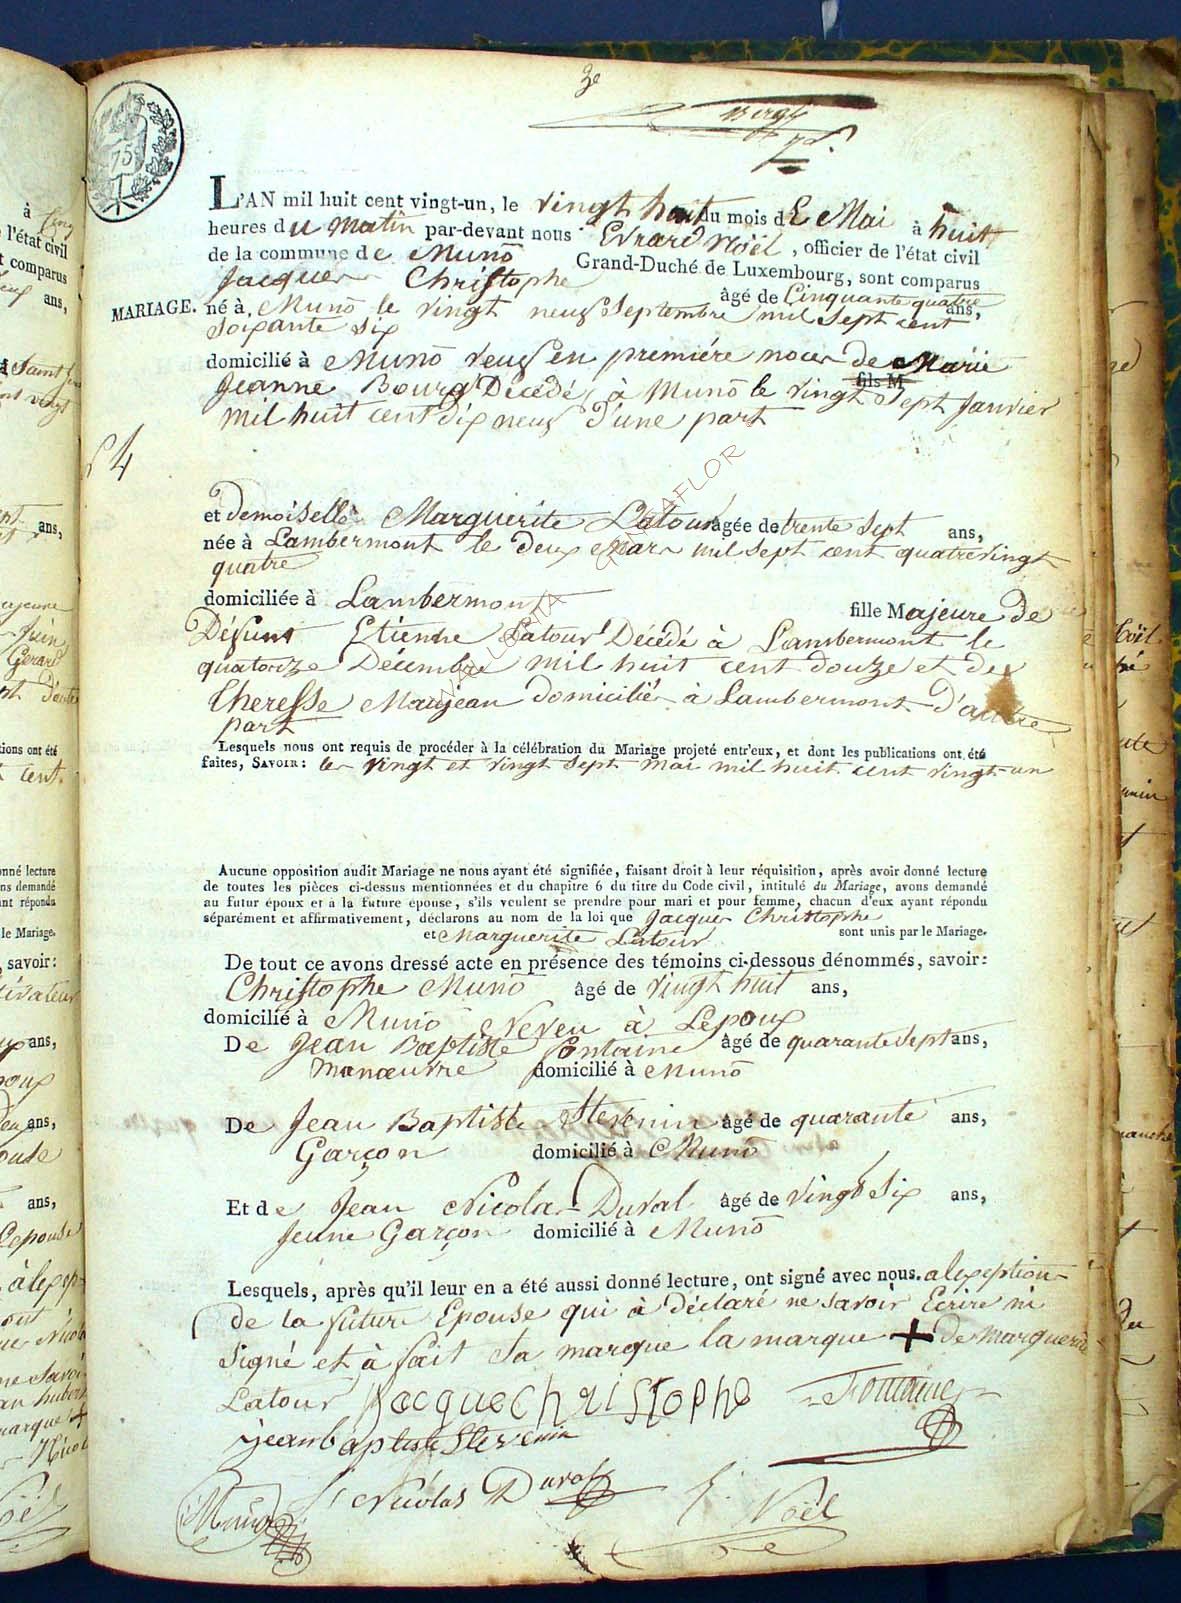 3e
75
L'AN mil huit cent vingt-un, le vingt huit du mois dE Mai à huit
heures du Matin par-devant nous Evrard Nöel, officier de l'état civil
de la commune de Muno Grand-Duché de Luxembourg, sont comparus
Jacques Christophe âgé de Cinquante quatre ans,
MARIAGE. né à Muno le vingt neuf Septembre mil sept cent
soixante six
domicilié à Muno veuf en premiére noces de Marie
fils M
Jeanne Bourg Décédé à Muno le vingt Sept Janvier
mil huit cent dix neuf D'une part
54
et demoiselle Marguerite Latour âgée de trente sept ans,
née à Lambermont le deux mars mil sept cent quatrevingt
quatre
domiciliée à Lambermont fille Majeure de
Défunt Etienne Latour Décédé à Lambermont le
quatorze Décembre mil huit cent douze et de
Theresse Maujean domicilié à Lambermont D'autre
part
Lesquels nous ont requis de procéder à la célébration du Mariage projeté entr'eux, et dont les publications ont été
faites, SAVOIR: les vingt et vingt sept mai mil huit cent vingt-un
Aucune opposition audit Mariage ne nous ayant été signifiée, faisant droit à leur réquisition, après avoir donné lecture
de toutes les pièces ci-dessus mentionnées et du chapitre 6 du titre du Code civil, intitulé du Mariage, avons demandé
au futur époux et à la future épouse, s'ils veulent se prendre pour mari et pour femme, chacun d'eux ayant répondu
séparément et affirmativement, déclarons au nom de la loi que Jacques Christophe
et Marguerite Latour sont unis par le Mariage.
De tout ce avons dressé acte en présence des témoins ci-dessous dénommés, savoir:
Christophe Muno âgé de vingt huit ans,
domicilié à Muno Neveu à Lepoux
De Jean Baptiste fontaine âgé de quarante sept ans,
manœuvre domicilié à Muno
De Jean Baptiste Stevenin âgé de quarante ans,
Garçon domicilié à Muno
Et de Jean Nicolas Duval âgé de vingt six ans,
Jeune Garçon domicilié à Muno
Lesquels, après qu'il leur en a été aussi donné lecture, ont signé avec nous. alexeption
de la future Epouse qui à déclaré ne savoir Ecrire ni
signé et à fait sa marque la marque + de marguerite
Latour Jacque christophe Fontaine
jean baptiste Stevenin
Nicolas Duval E. Nöel
Muno